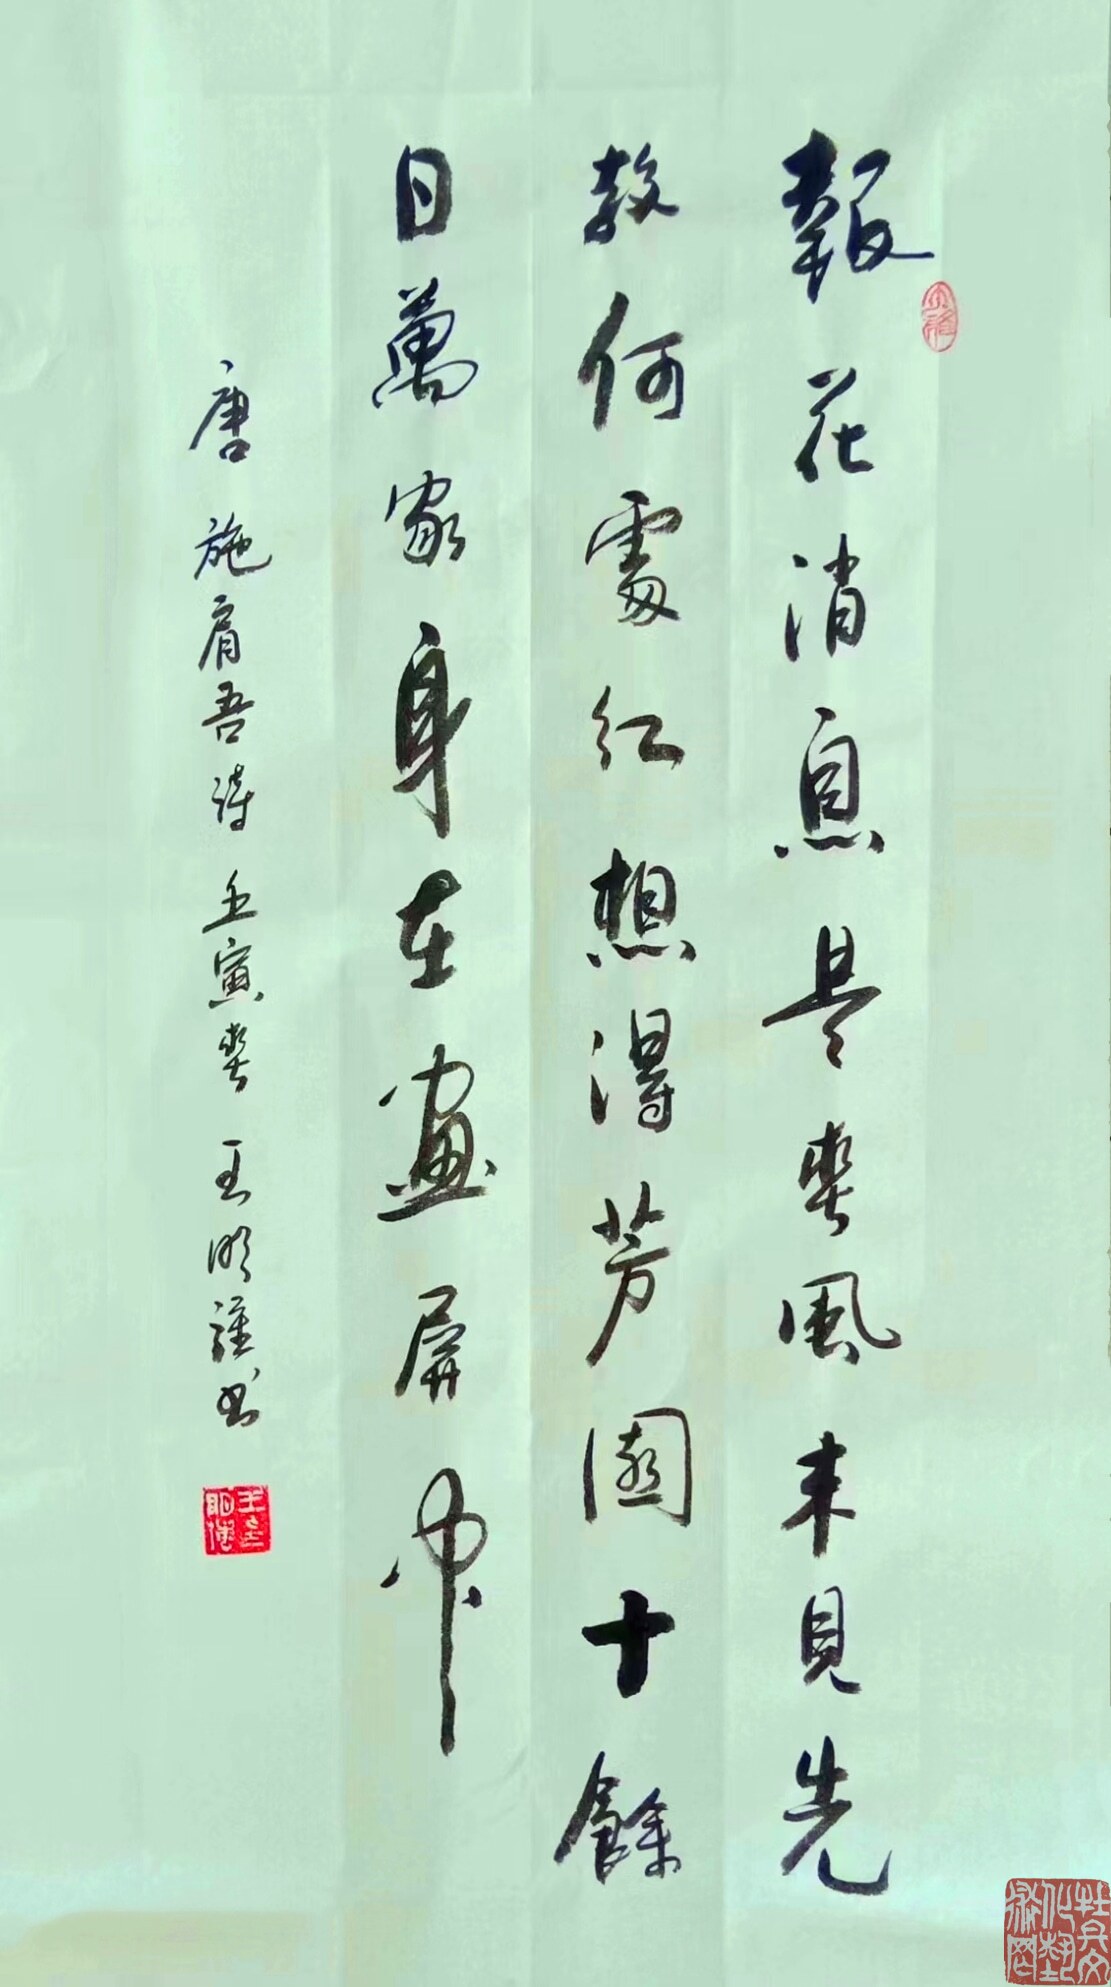 報花消息是春風未見先
教何處紅想得芳園十餘
日萬家身在畫屏中
唐 施肩吾詩 壬寅春 王明謹書